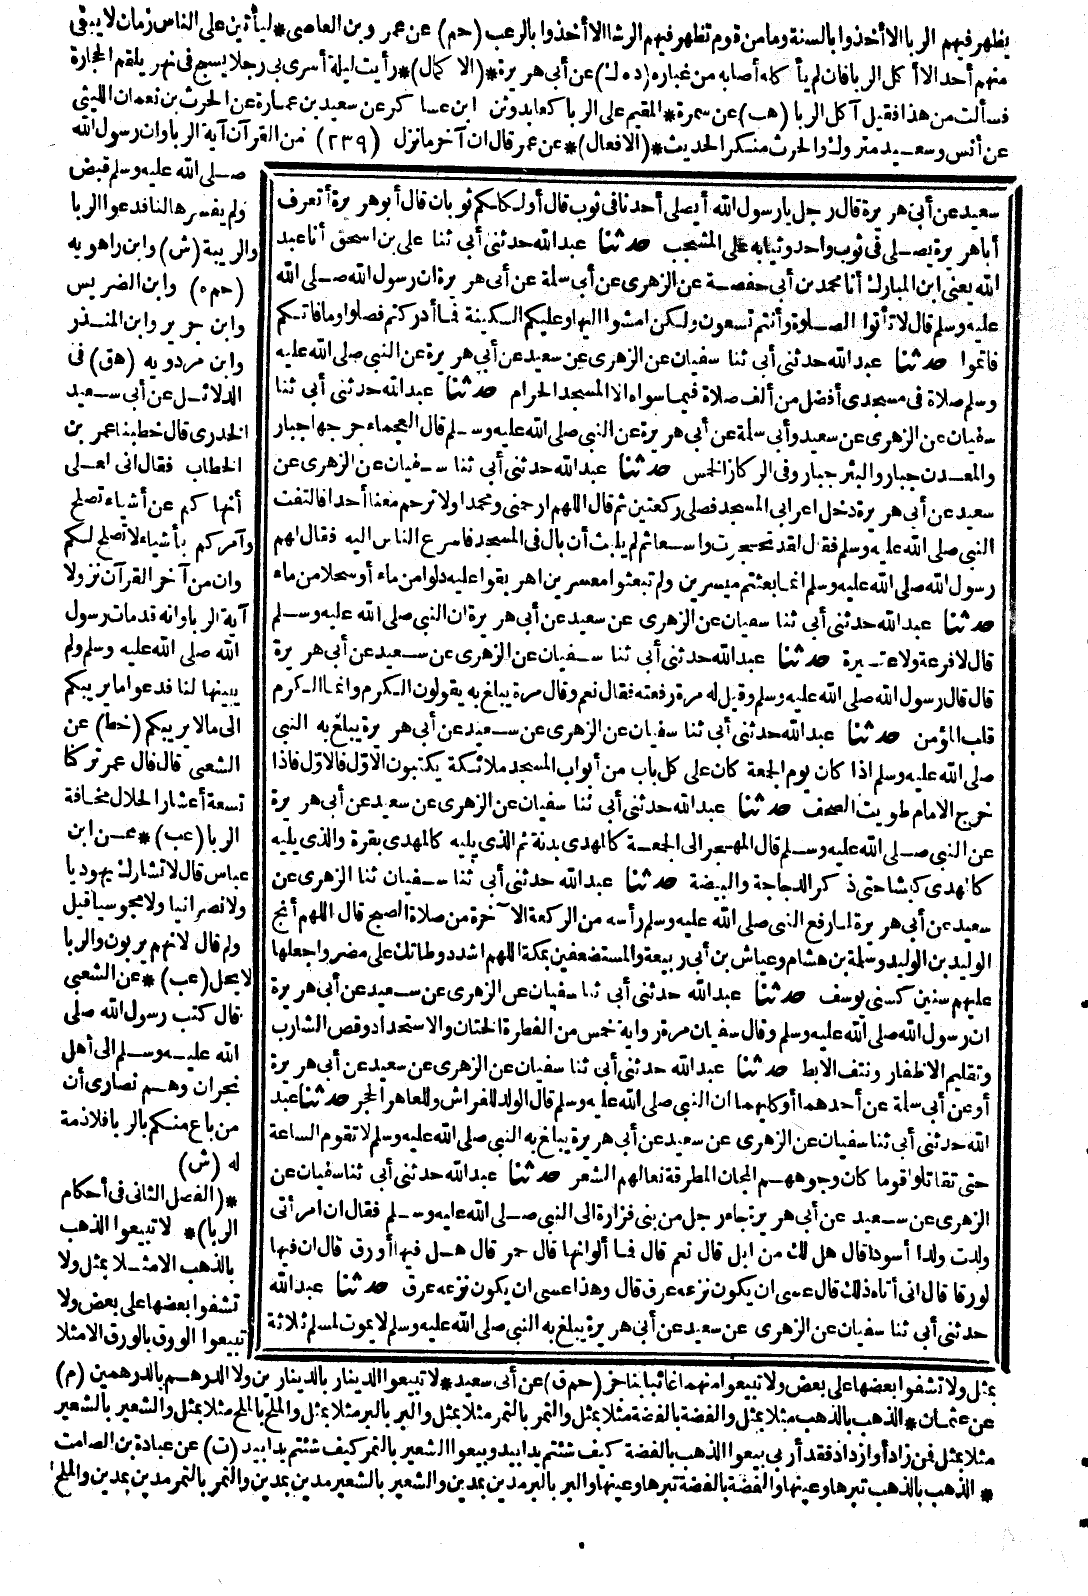 يظهر فيهم الربا الا أخذوا بالسنة وما من قوم تظهر فيهم الرشا الا أخذوا بالرعب (حم) عن عمرو بن العاصى * ليأتين على الناس زمان لا يبقى
منهم أحد الا أكل الربا فان لم يأكله أصابه من غباره (د ه ك) عن أبى هريرة * (الاكمال) * رأيت ليلة أسرى بى رجلا يسبح فى نهر يلقم الحجارة
فسألت من هذا فقيل آكل الربا (هب) عن سمرة * المقيم على الربا كعابد وثن ابن عساكر عن سعيد بن عمارة عن الحرث بن نعمان الليثى
عن أنس وسعيد متروك والحرث منكر الحديث * (الافعال) * عن عمر قال ان آخر ما نزل (٢٣٩) من القرآن آية الربا وان رسول الله
صلى الله عليه وسلم قبض
ولم يفسرها لنا فدعوا الربا
والريبة (ش) وابن راهويه
(حم ه) وابن الضريس
وابن جرير وابن المنذر
وابن مردويه (هق) فى
الدلائل عن أبى سعيد
الخدرى قال خطبنا عمر بن
الخطاب فقال انى لعلى
أنهاكم عن أشياء تصلح
وآمركم بأشياء لا تصلح لكم
وان من آخر القرآن نزولا
آية الربا وانه قد مات رسول
الله صلى الله عليه وسلم ولم
يبينها لنا فدعوا ما يريبكم
الى ما لا يريبكم (خط) عن
الشعبى قال قال عمر تركنا
تسعة أعشار الحلال مخافة
الربا (عب) * عن ابن
عباس قال لا تشارك يهوديا
ولا نصرانيا ولا مجوسيا قيل
ولم قال لانهم يربون والربا
لا يحل (عب) * عن الشعبى
قال كتب رسول الله صلى
الله عليه وسلم الى أهل
نجران وهم نصارى أن
من باع منكم بالربا فلا ذمة
له (ش)
* (الفصل الثانى فى أحكام
الربا) * لا تبيعوا الذهب
بالذهب الا مثلا بمثل ولا
تشفوا بعضها على بعض ولا
تبيعوا الورق بالورق الا مثلا
سعيد عن أبى هريرة قال رجل يا رسول الله أيصلى أحدنا فى ثوب قال أولكلكم ثوبان قال أبو هريرة أتعرف
أبا هريرة يصلى فى ثوب واحد وثيابه على المشجب حدثنا عبد الله حدثنى أبى ثنا على بن اسحق أنا عبد
الله يعنى ابن المبارك أنا محمد بن أبى حفصة عن الزهرى عن أبى سلمة عن أبى هريرة ان رسول الله صلى الله
عليه وسلم قال لا تأتوا الصلوة وأنتم تسعون ولكن امشوا اليها وعليكم السكينة فما أدركتم فصلوا وما فاتكم
فاتموا حدثنا عبد الله حدثنى أبى ثنا سفيان عن الزهرى عن سعيد عن أبى هريرة عن النبى صلى الله عليه
وسلم صلاة فى مسجدى أفضل من ألف صلاة فيما سواه الا المسجد الحرام حدثنا عبد الله حدثنى أبى ثنا
سفيان عن الزهرى عن سعيد وأبى سلمة عن أبى هريرة عن النبى صلى الله عليه وسلم قال العجماء جرحها جبار
والمعدن جبار والبئر جبار وفى الركاز الخمس حدثنا عبد الله حدثنى أبى ثنا سفيان عن الزهرى عن
سعيد عن أبى هريرة دخل اعرابى المسجد فصلى ركعتين ثم قال اللهم ارحمنى ومحمدا ولا ترحم معنا أحدا فالتفت
النبى صلى الله عليه وسلم فقال لقد تحجرت واسعا ثم لم يلبث أن بال فى المسجد فاسرع الناس اليه فقال لهم
رسول الله صلى الله عليه وسلم انما بعثتم ميسرين ولم تبعثوا معسرين اهريقوا عليه دلوا من ماء أو سجلا من ماء
حدثنا عبد الله حدثنى أبى ثنا سفيان عن الزهرى عن سعيد عن أبى هريرة ان النبى صلى الله عليه وسلم
قال لا فرعة ولا عتيرة حدثنا عبد الله حدثنى أبى ثنا سفيان عن الزهرى عن سعيد عن أبى هريرة
قال قال رسول الله صلى الله عليه وسلم وقيل له مرة رفعته فقال نعم وقال مرة يبلغ به يقولون الكرم وانما الكرم
قلب المؤمن حدثنا عبد الله حدثنى أبى ثنا سفيان عن الزهرى عن سعيد عن أبى هريرة يبلغ به النبى
صلى الله عليه وسلم اذا كان يوم الجمعة كان على كل باب من أبواب المسجد ملائكة يكتبون الاول فالاول فاذا
خرج الامام طويت الصحف حدثنا عبد الله حدثنى أبى ثنا سفيان عن الزهرى عن سعيد عن أبى هريرة
عن النبى صلى الله عليه وسلم قال المهجر الى الجمعة كالمهدى بدنة ثم الذى يليه كالمهدى بقرة والذى يليه
كالمهدى كبشا حتى ذكر الدجاجة والبيضة حدثنا عبد الله حدثنى أبى ثنا سفيان ثنا الزهرى عن
سعيد عن أبى هريرة لما رفع النبى صلى الله عليه وسلم رأسه من الركعة الآخرة من صلاة الصبح قال اللهم أنج
الوليد بن الوليد وسلمة بن هشام وعياش بن أبى ربيعة والمستضعفين بمكة اللهم اشدد وطأتك على مضر واجعلها
عليهم سنين كسنى يوسف حدثنا عبد الله حدثنى أبى ثنا سفيان عن الزهرى عن سعيد عن أبى هريرة
ان رسول الله صلى الله عليه وسلم وقال سفيان مرة رواية خمس من الفطرة الختان والاستحداد وقص الشارب
وتقليم الاظفار ونتف الابط حدثنا عبد الله حدثنى أبى ثنا سفيان عن الزهرى عن سعيد عن أبى هريرة
أو عن أبى سلمة عن أحدهما أو كليهما ان النبى صلى الله عليه وسلم قال الولد للفراش وللعاهر الحجر حدثنا عبد
الله حدثنى أبى ثنا سفيان عن الزهرى عن سعيد عن أبى هريرة يبلغ به النبى صلى الله عليه وسلم لا تقوم الساعة
حتى تقاتلوا قوما كان وجوههم المجان المطرقة نعالهم الشعر حدثنا عبد الله حدثنى أبى ثنا سفيان عن
الزهرى عن سعيد عن أبى هريرة جاء رجل من بنى فزارة الى النبى صلى الله عليه وسلم فقال ان امرأتى
ولدت ولدا أسود قال هل لك من ابل قال نعم قال فما ألوانها قال حمر قال هل فيها أورق قال ان فيها
لورقا قال انى أتاه ذلك قال عسى ان يكون نزعه عرق قال وهذا عسى ان يكون نزعه عرق حدثنا عبد الله
حدثنى أبى ثنا سفيان عن الزهرى عن سعيد عن أبى هريرة يبلغ به النبى صلى الله عليه وسلم لا يموت لمسلم ثلاثة
بمثل ولا تشفوا بعضها على بعض ولا تبيعوا منهما غائبا بناجز (حم ق) عن أبى سعيد * لا تبيعوا الدينار بالدينارين ولا الدرهم بالدرهمين (م)
عن عثمان * الذهب بالذهب مثلا بمثل والفضة بالفضة مثلا بمثل والتمر بالتمر مثلا بمثل والبر بالبر مثلا بمثل والملح بالملح مثلا بمثل والشعير بالشعير
مثلا بمثل فمن زاد أو ازداد فقد أربى بيعوا الذهب بالفضة كيف شئتم يدا بيد وبيعوا الشعير بالتمر كيف شئتم يدا بيد (ت) عن عبادة بن الصامت
* الذهب بالذهب تبرها وعينها والفضة بالفضة تبرها وعينها والبر بالبر مدين بمدين والشعير بالشعير مدين بمدين والتمر بالتمر مدين بمدين والملح